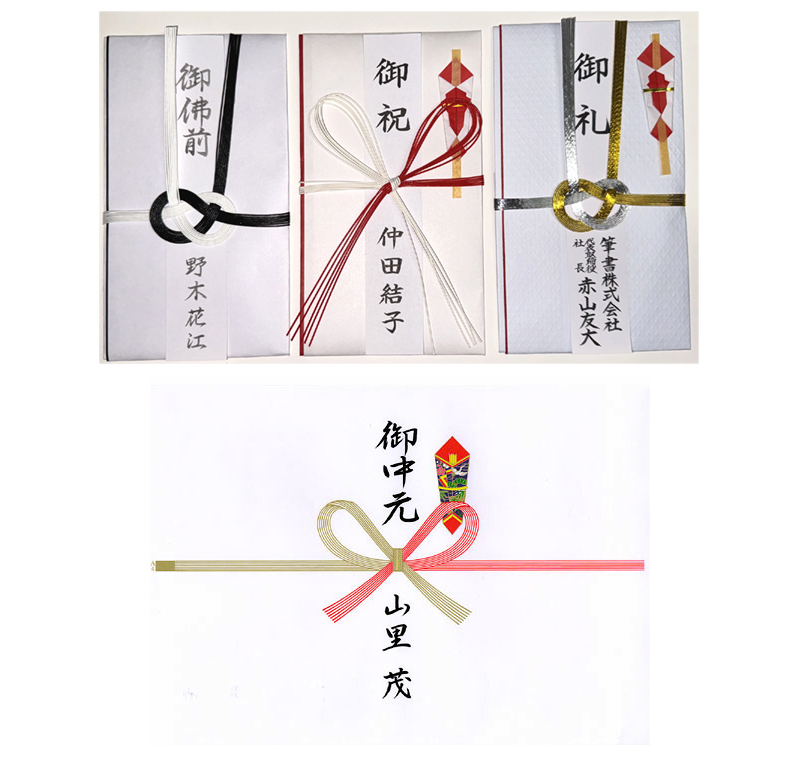 御佛前
野木花江
御祝
仲田結子
御礼
筆書株式会社
代表取締役
社長
赤山友大
御中元
山里 茂